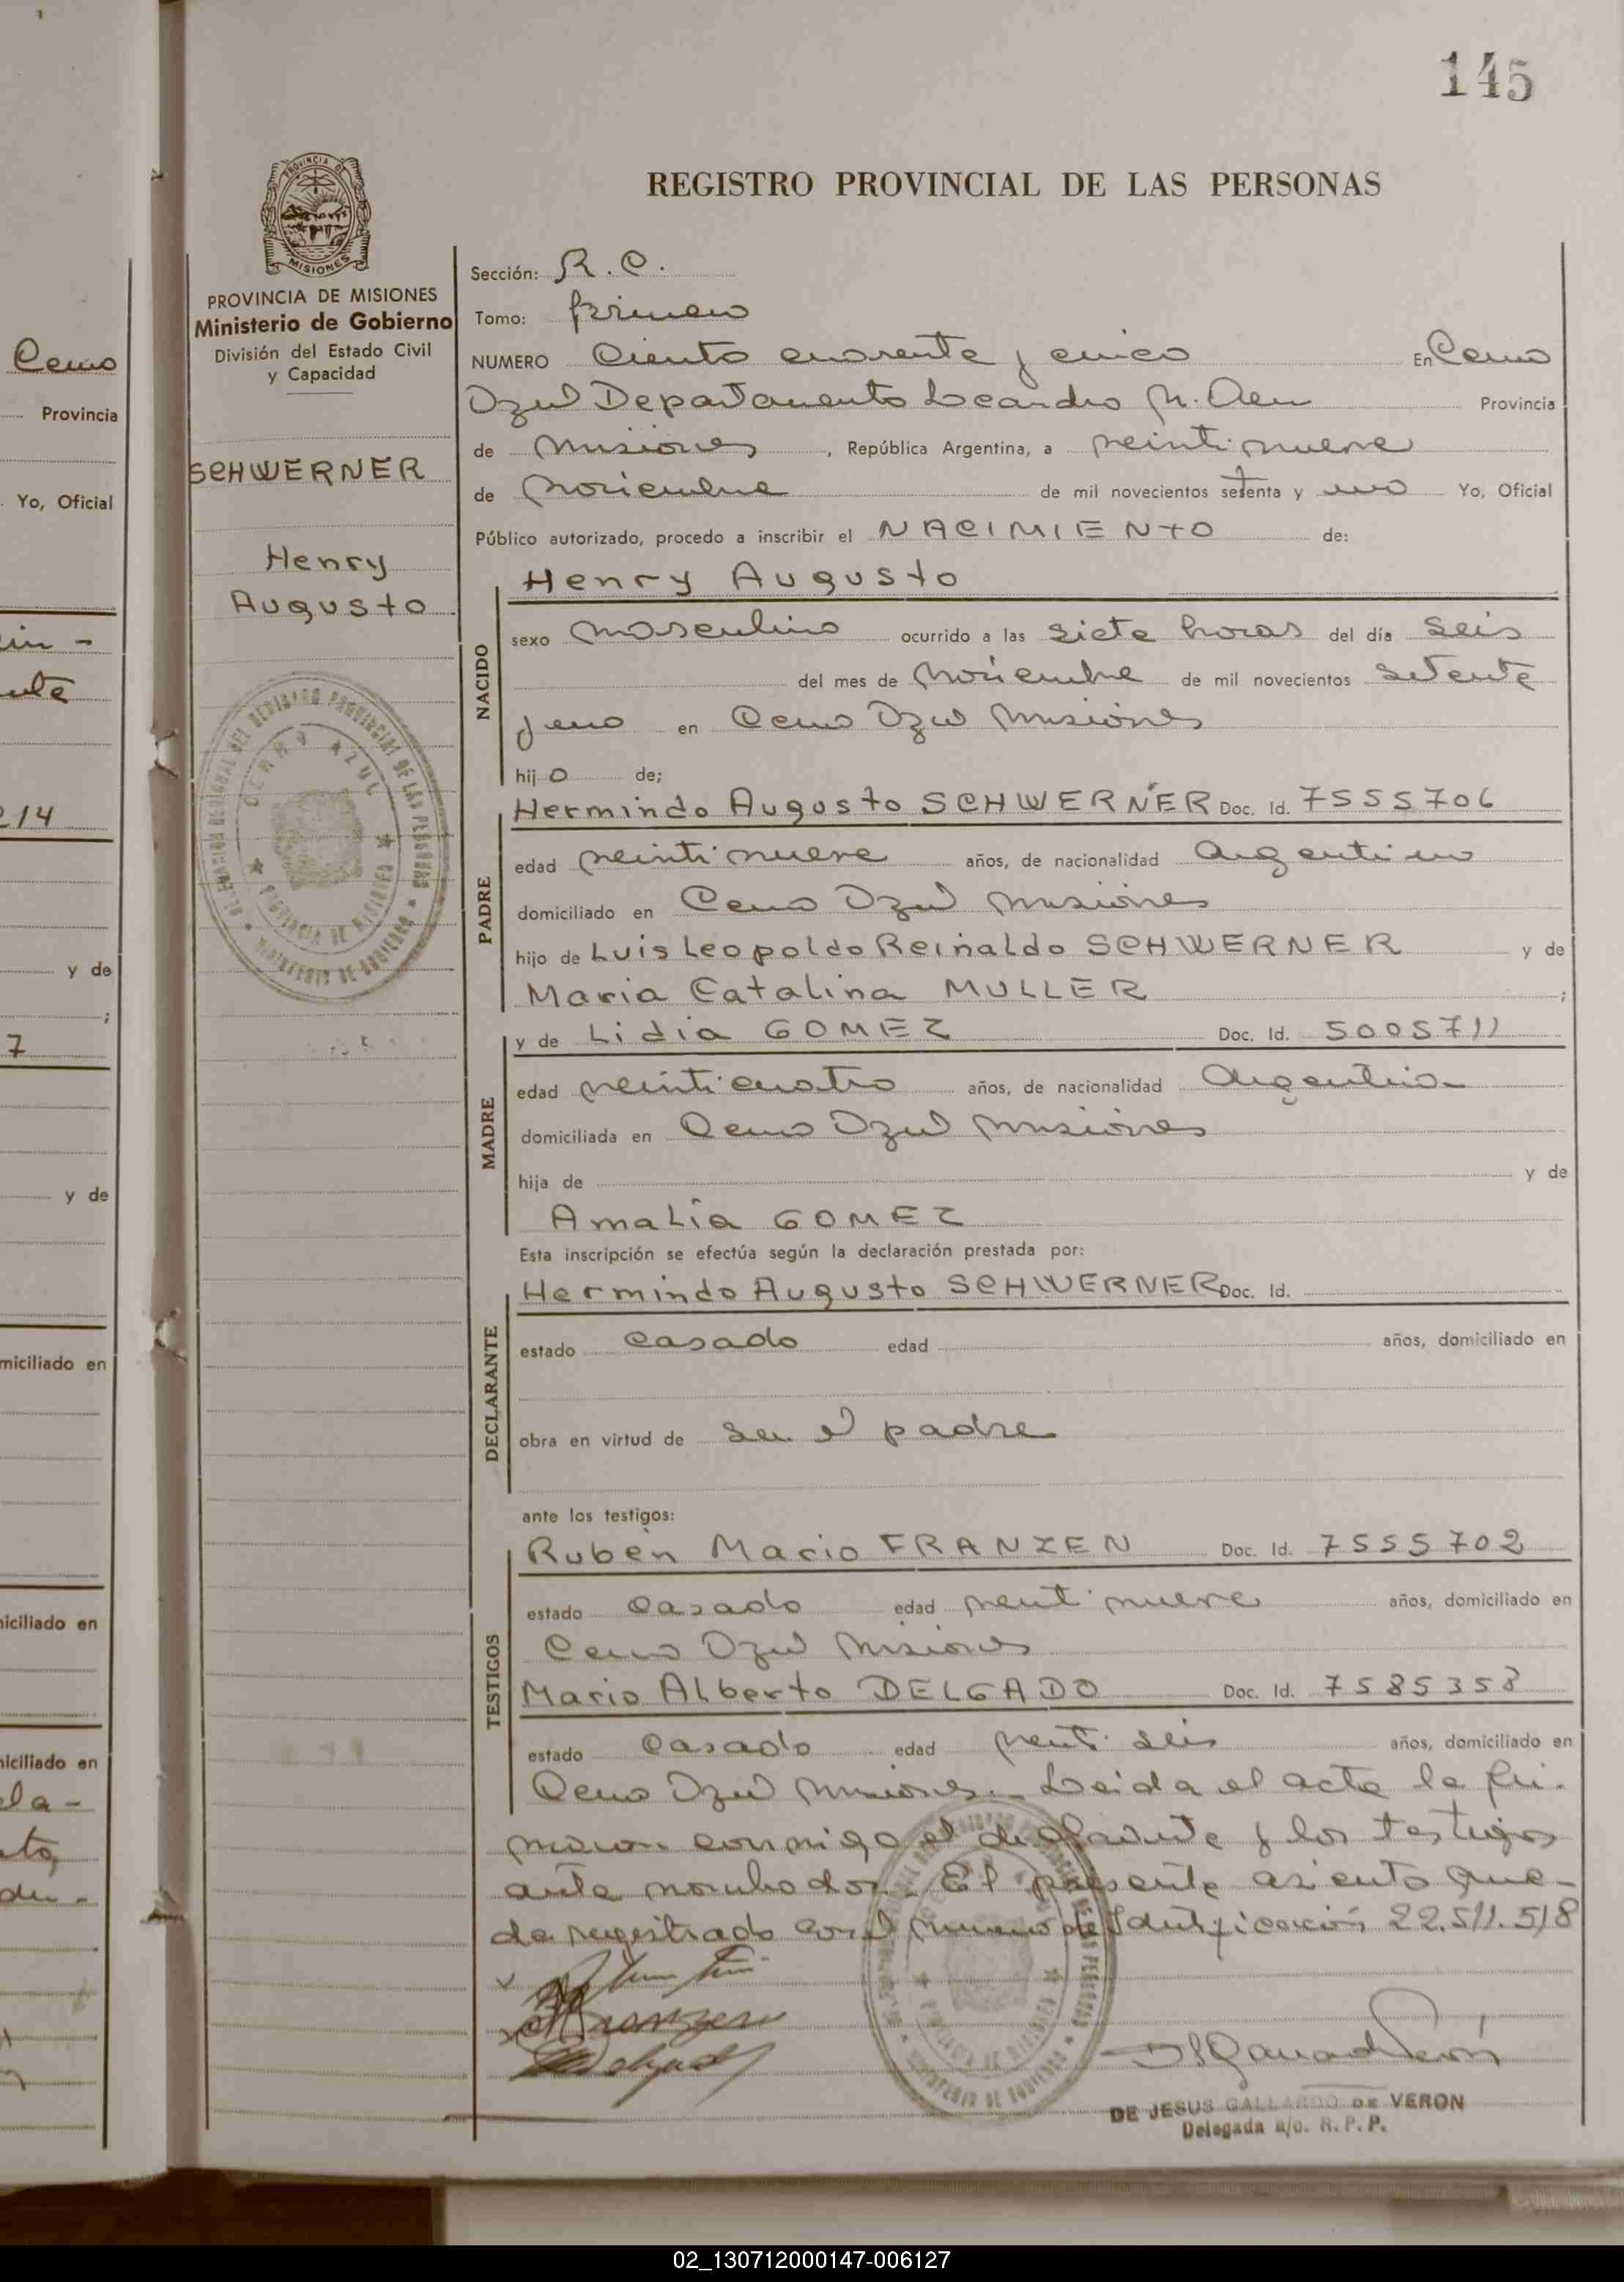 145
PROVINCIA DE
MISIONES
REGISTRO PROVINCIAL DE LAS PERSONAS
PROVINCIA DE MISIONES
Ministerio de Gobierno
División del Estado Civil
y Capacidad
SCHWERNER
Henry
Augusto
Sección: R.C.
Tomo: primero
NUMERO Ciento cuarenta y cinco En Cerro
Azul Departamento Leandro N. Alem Provincia
de Misiones, República Argentina, a veintinueve
de Noviembre de mil novecientos setenta y uno Yo, Oficial
Público autorizado, procedo a inscribir el NACIMIENTO de:
Henry Augusto
NACIDO
sexo masculino ocurrido a las siete horas del día seis
del mes de Noviembre de mil novecientos setenta
y uno en Cerro Azul Misiones
hijo de;
Hermindo Augusto SCHWERNER Doc. Id. 7555706
PADRE
edad veintinueve años, de nacionalidad Argentino
domiciliado en Cerro Azul Misiones
hijo de Luis Leopoldo Reinaldo SCHWERNER y de
Maria Catalina MULLER ;
y de Lidia GOMEZ Doc. Id. 5005711
MADRE
edad veinticuatro años, de nacionalidad Argentina
domiciliada en Cerro Azul Misiones
hija de y de
Amalia GOMEZ
Esta inscripción se efectúa según la declaración prestada por:
Hermindo Augusto SCHWERNER Doc. Id.
DECLARANTE
estado casado edad años, domiciliado en
obra en virtud de ser el padre
ante los testigos:
Rubén Mario FRANZEN Doc. Id. 7555702
TESTIGOS
estado casado edad veintinueve años, domiciliado en
Cerro Azul Misiones
Mario Alberto DELGADO Doc. Id. 7585358
estado casado edad veintiseis años, domiciliado en
Cerro Azul Misiones. Leida el acta la fir-
maron conmigo el declarante y los testigos
ante nombados. El presente asiento que-
da registrado con el numero de Identificación 22.511.518
DE JESUS GALLARDO DE VERON
Delegada a/c. R. P. P.
Cerro
Provincia
Yo, Oficial
214
y de
;
7
y de
miciliado en
niciliado en
niciliado en
02_130712000147-006127